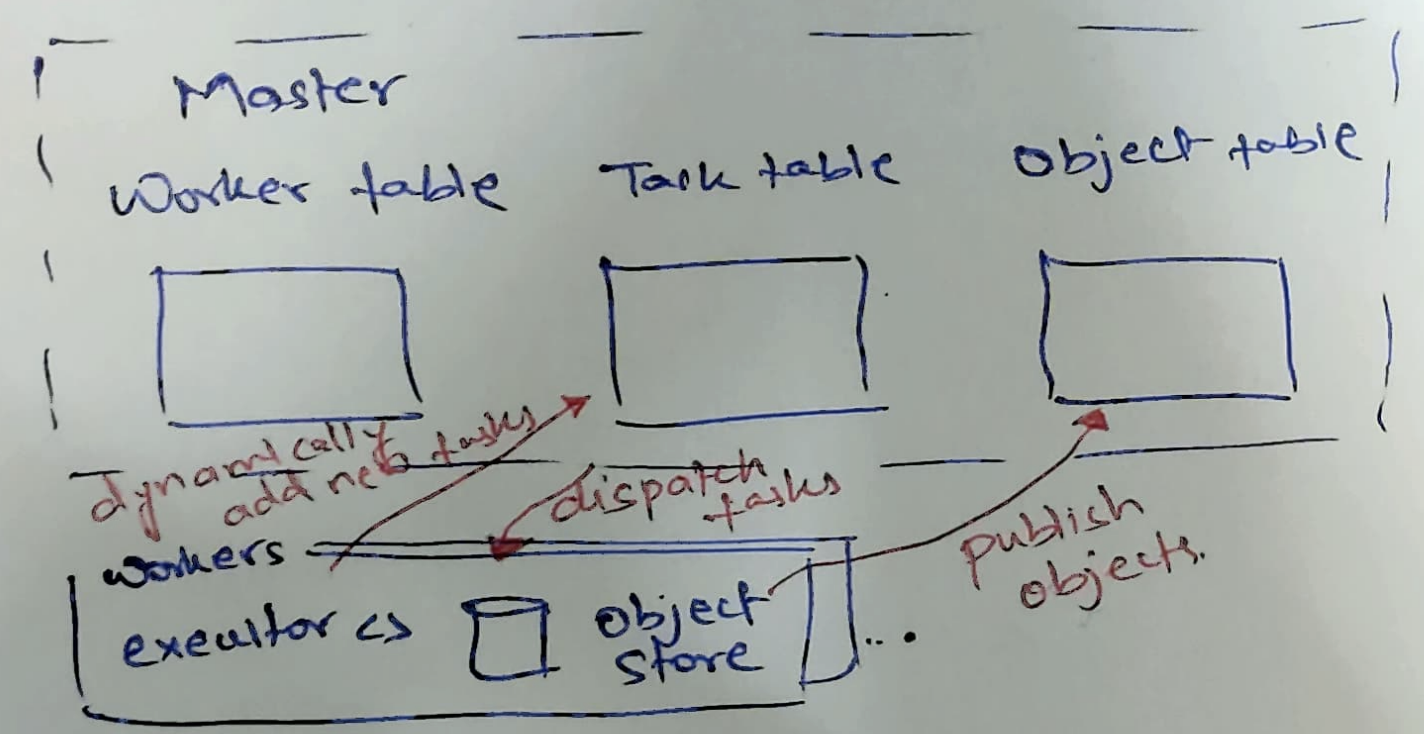 Master
Worker table
Task table
Object table
dynamically
add new tasks
dispatch
tasks
publish
objects.
workers
executor <>
object
store
...